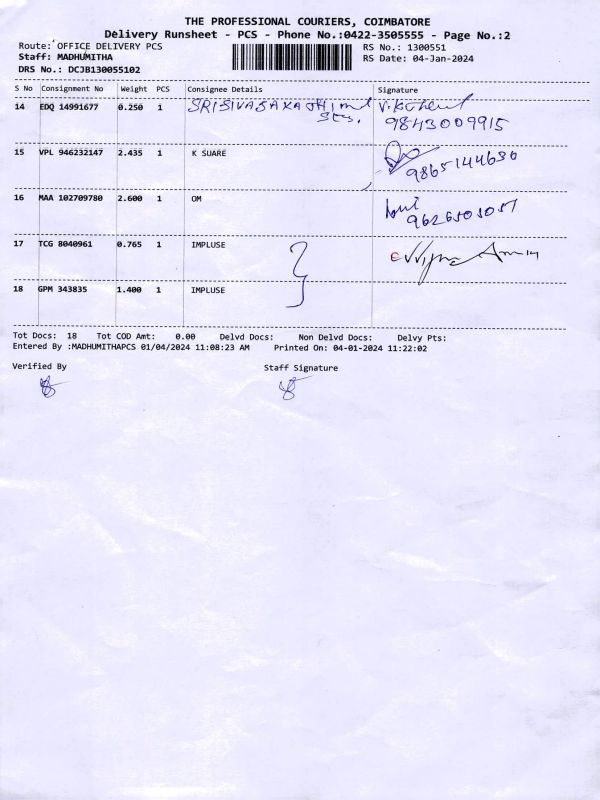 THE PROFESSIONAL COURIERS, COIMBATORE
Delivery Runsheet - PCS - Phone No.:0422-3505555 - Page No.:2
Route: OFFICE DELIVERY PCS RS No.: 1300551
Staff: MADHUMITHA RS Date: 04-Jan-2024
DRS No.: DCJB130055102
S No Consignment No Weight PCS Consignee Details Signature
14 EDQ 14991677 0.250 1
9843009915
15 VPL 946232147 2.435 1 K SUARE
9865144630
16 MAA 102709780 2.600 1 OM
17 TCG 8040961 0.765 1 IMPLUSE
18 GPM 343835 1.400 1 IMPLUSE
Tot Docs: 18 Tot COD Amt: 0.00 Delvd Docs: Non Delvd Docs: Delvy Pts:
Entered By :MADHUMITHAPCS 01/04/2024 11:08:23 AM Printed On: 04-01-2024 11:22:02
Verified By Staff Signature